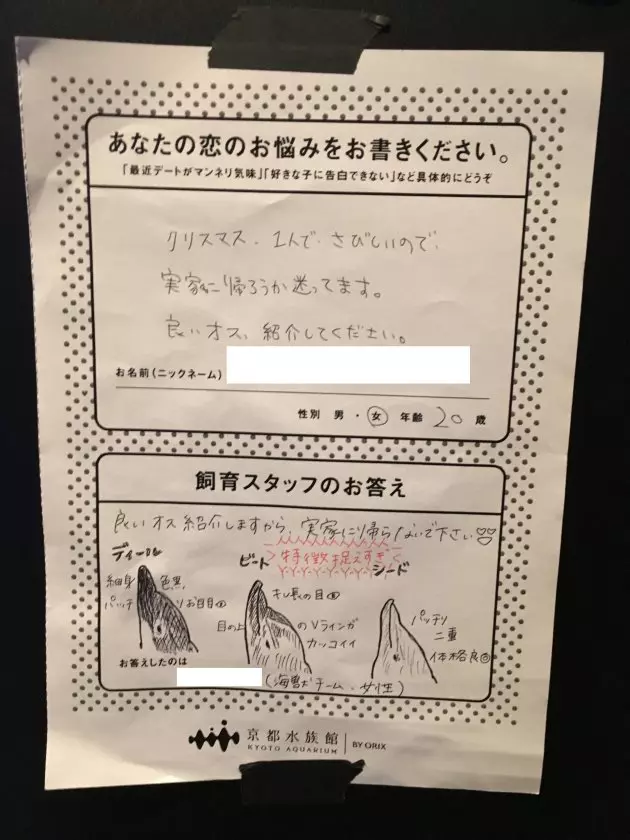 あなたの恋のお悩みをお書きください。
「最近デートがマンネリ気味」「好きな子に告白できない」など具体的にどうぞ
クリスマス、1人で、さびしいので、
実家に帰ろうか迷ってます。
良いオス、紹介してください。
お名前(ニックネーム)
性別 男・女 年齢 20 歳
飼育スタッフのお答え
良いオス紹介しますから、実家に帰らないで下さい
ディール
細身 色黒
パッチリお目目
ビート
特徴捉えすぎ
キレ長の目
目の上のVラインが
カッコイイ
シード
パッチリ
二重
体格良
お答えしたのは
(海獣チーム、女性)
京都水族館
KYOTO AQUARIUM
BY ORIX